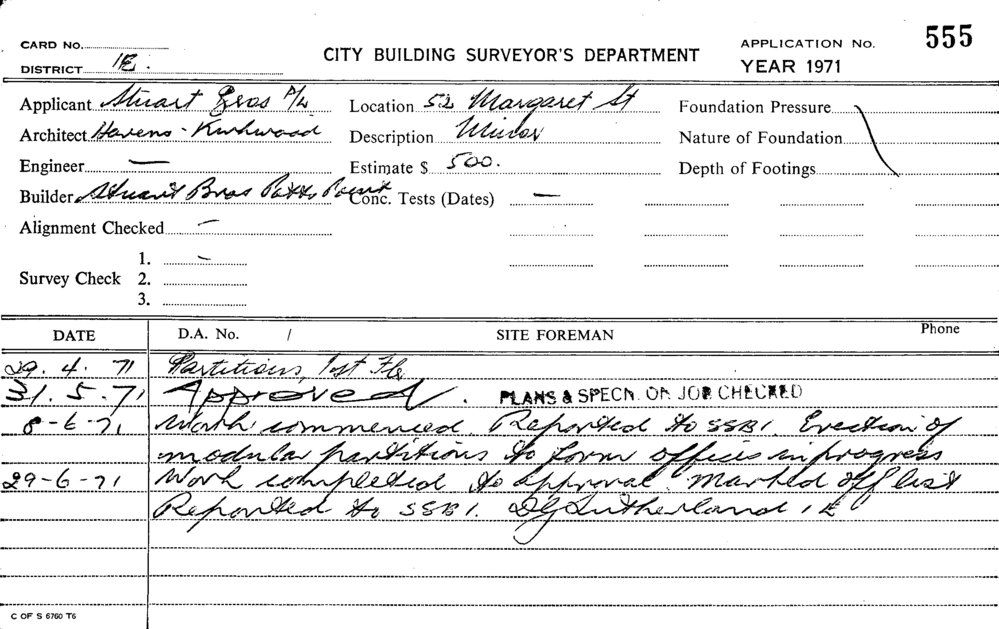 CARD No.
DISTRICT 1E.
CITY BUILDING SURVEYOR'S DEPARTMENT
APPLICATION No. 555
YEAR 1971
Applicant Stuart Bros P/L Location 52 Margaret St Foundation Pressure
Architect Havens - Kirkwood Description Minor Nature of Foundation
Engineer — Estimate $ 500. Depth of Footings
Builder Stuart Bros Potts Point Conc. Tests (Dates) —
Alignment Checked —
1. —
Survey Check 2.
3.
DATE D.A. No. / SITE FOREMAN Phone
29. 4. 71 Partitions, 1st Flr
31. 5. 71 Approved. PLANS & SPECN. ON JOB CHECKED
8-6-71 Work commenced. Reported to SSBI. Erection of
modular partitions to form offices in progress
29-6-71 Work completed to approval. Marked off list
Reported to SSBI. DG Sutherland 1E
C OF S 6760 T6